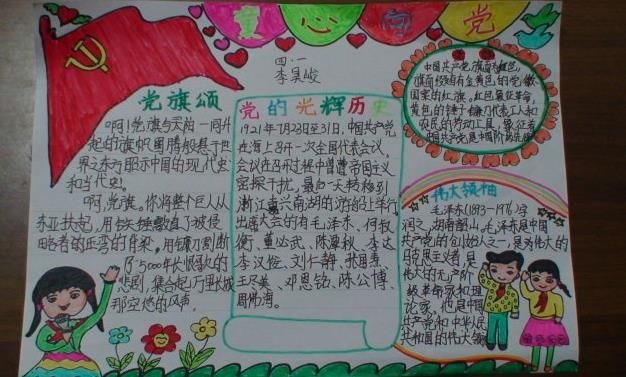 童心向党
四·一
李昊峻
党旗颂
啊!党旗与天灿一同升
起的旗帜
界之东方昭示中国的现代史
和当代史。
啊,党旗,你将整个巨人从
东亚扶起,用
略者的
历5000年长恨歌的
悲剧,集合起万里长城
那空他的风声
党的光辉历史
1921年7月23日至31日,中国共产党
在海上召开一次全国代表会议,
会议在召开过程中曾遭帝国主义
密探干扰,最后一天转移到
浙江南兴南湖的游船上举行,
出席大会的有毛泽东、何叔
衡、董必武、陈潭秋、李达
李汉俊、刘仁静、张国焘、
王尽美、邓恩铭、陈公博、
周佛海。
中国共产党旗面为红色,
旗面
国家的红旗。红色象征革命,
黄色的锤子、镰刀代表工人和
农民的劳动工具,象征着
中国共产党是中国
伟大领袖
毛泽东(1893-1976)字
润之,湖南韶山,毛泽东是中国
共产党的创始人之一,是为伟大的
马克思主义者,是
伟大的无产阶
级革命家和理
论家,他是中国
共产党和中华人民
共和国的伟大领